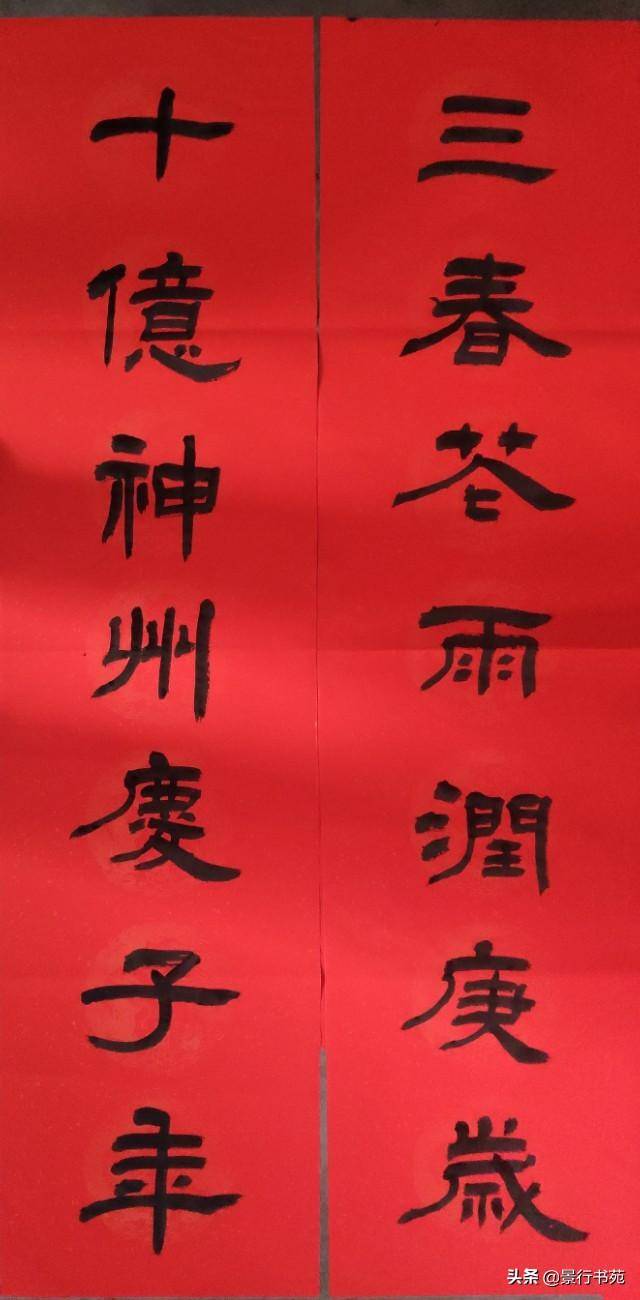 三春花雨潤庚歲
十億神州慶子年
头条 @景行书苑